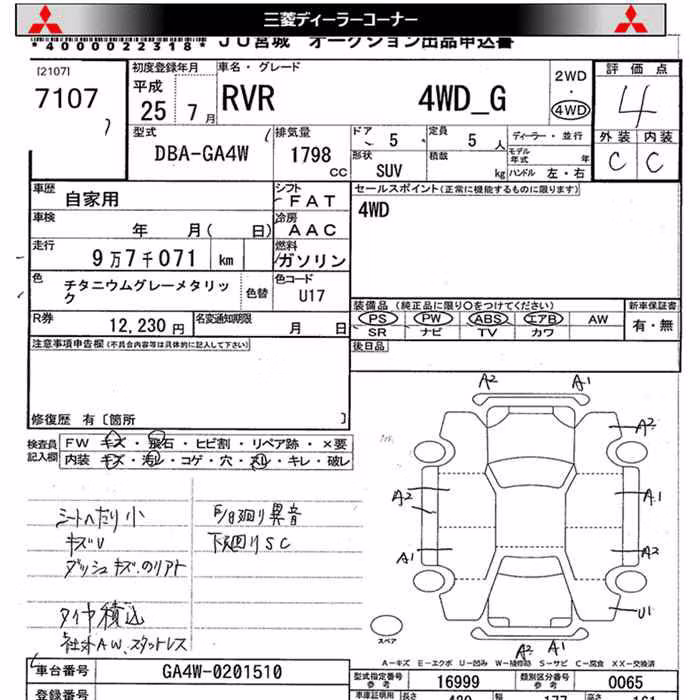 三菱ディーラーコーナー
*4000022318* JU宮城 オークション出品申込書
[2107]
7107
初度登録年月
平成
25 7月
車名・グレード
RVR 4WD_G
2WD
・
4WD
評価点
4
外装 内装
C C
型式
DBA-GA4W
排気量
1798
CC
ドア
5
定員
5 人
形状
SUV
積載
kg
ディーラー・並行
モデル年式 年
ハンドル 左・右
車歴
自家用
シフト
FAT
セールスポイント(正常に機能するものに限ります)
4WD
車検
年 月( 日)
冷房
AAC
走行
9万7千071 km
燃料
ガソリン
色
チタニウムグレーメタリック
色替
色コード
U17
装備品 (純正品に限り○をつけてください)
PS PW ABS エアB AW
SR ナビ TV カワ
新車保証書
有・無
R券
12,230 円
名変通知期限
月 日
後日品
注意事項申告欄(不具合内容等は具体的に記入して下さい)
修復歴 有〔箇所 〕
検査員記入欄
FW キズ・飛石・ヒビ割・リペア跡・×要
内装 キズ・汚レ・コゲ・穴・スレ・キレ・破レ
シートヘたり小
キズV
ダッシュキズ.のりアト
タイヤ積込
社外AW.スタットレス
廻り異音
下廻りSC
A2 A1
A2
A2 A1
A1 A2
U1
A2 A1
スペア
A-キズ E-エクボ U-凹み W-補修跡 S-サビ C-腐食 XX-交換済
車台番号
GA4W-0201510
型式指定番号
参考
16999
類別区分番号
参考
0065
登録番号
車庫証明用
長さ
幅
177
高さ